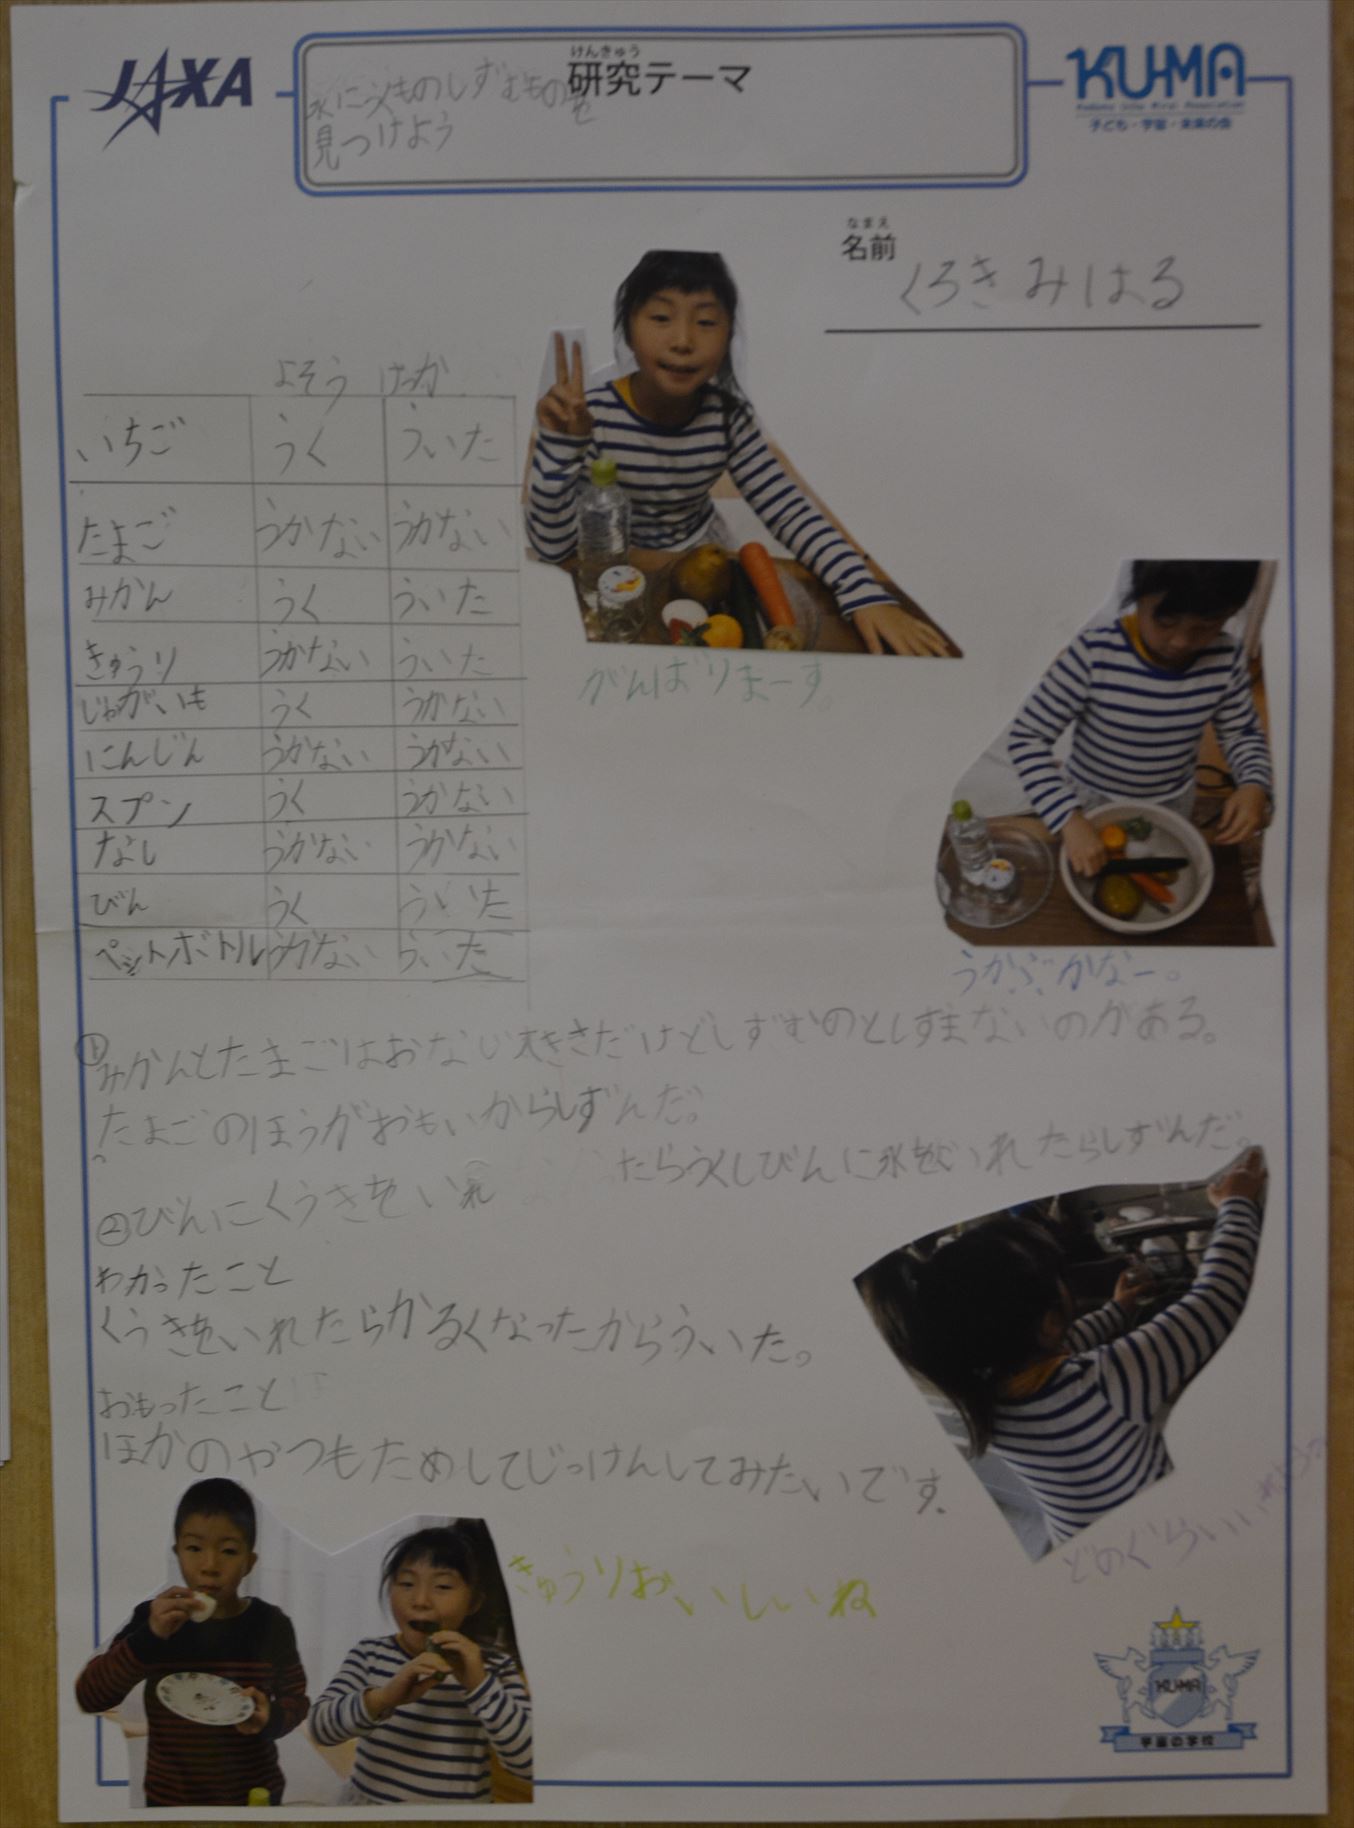 JAXA
けんきゅう
研究テーマ
水にうくものしずむものを
見つけよう
KU-MA
子ども・宇宙・未来の会
なまえ
名前
くろきみはる
よそう けっか
いちご うく ういた
たまご うかない うかない
みかん うく ういた
きゅうり うかない ういた
じゃがいも うく うかない
にんじん うかない うかない
スプン うく うかない
なし うかない うかない
びん うく ういた
ペットボトル うかない ういた
がんばりまーす。
うかぶかなー。
①みかんとたまごはおなじ大きさだけどしずむのとしずまないのがある。
たまごのほうがおもいからしずんだ。
②びんにくうきをいれたらうくしびんに水をいれたらしずんだ。
わかったこと
くうきをいれたらかるくなったからういた。
おもったこと
ほかのやつもためしてじっけんしてみたいです。
どのぐらいいれよう
きゅうりおいしいね
KU-MA
宇宙の学校